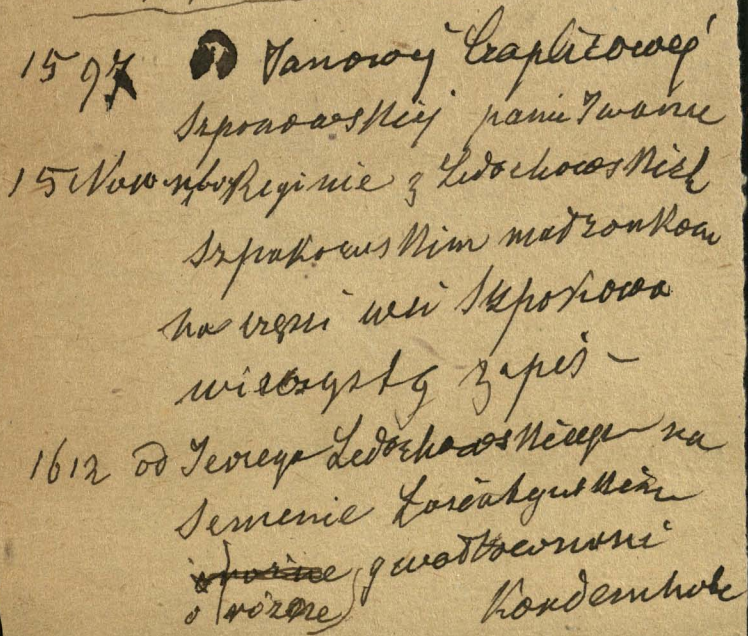 1597 od Janowej Czapliczowej
Szponowskiej panu Iwanu
15 Novembr Reginie z Ledochowskich
Szpakowskim małżonkom
na części wsi Szpakowa
wieczysty zapis -
1612 od Jerzego Ledochowskiego na
Semenie
gwałtowności
o różne Kondemnatę